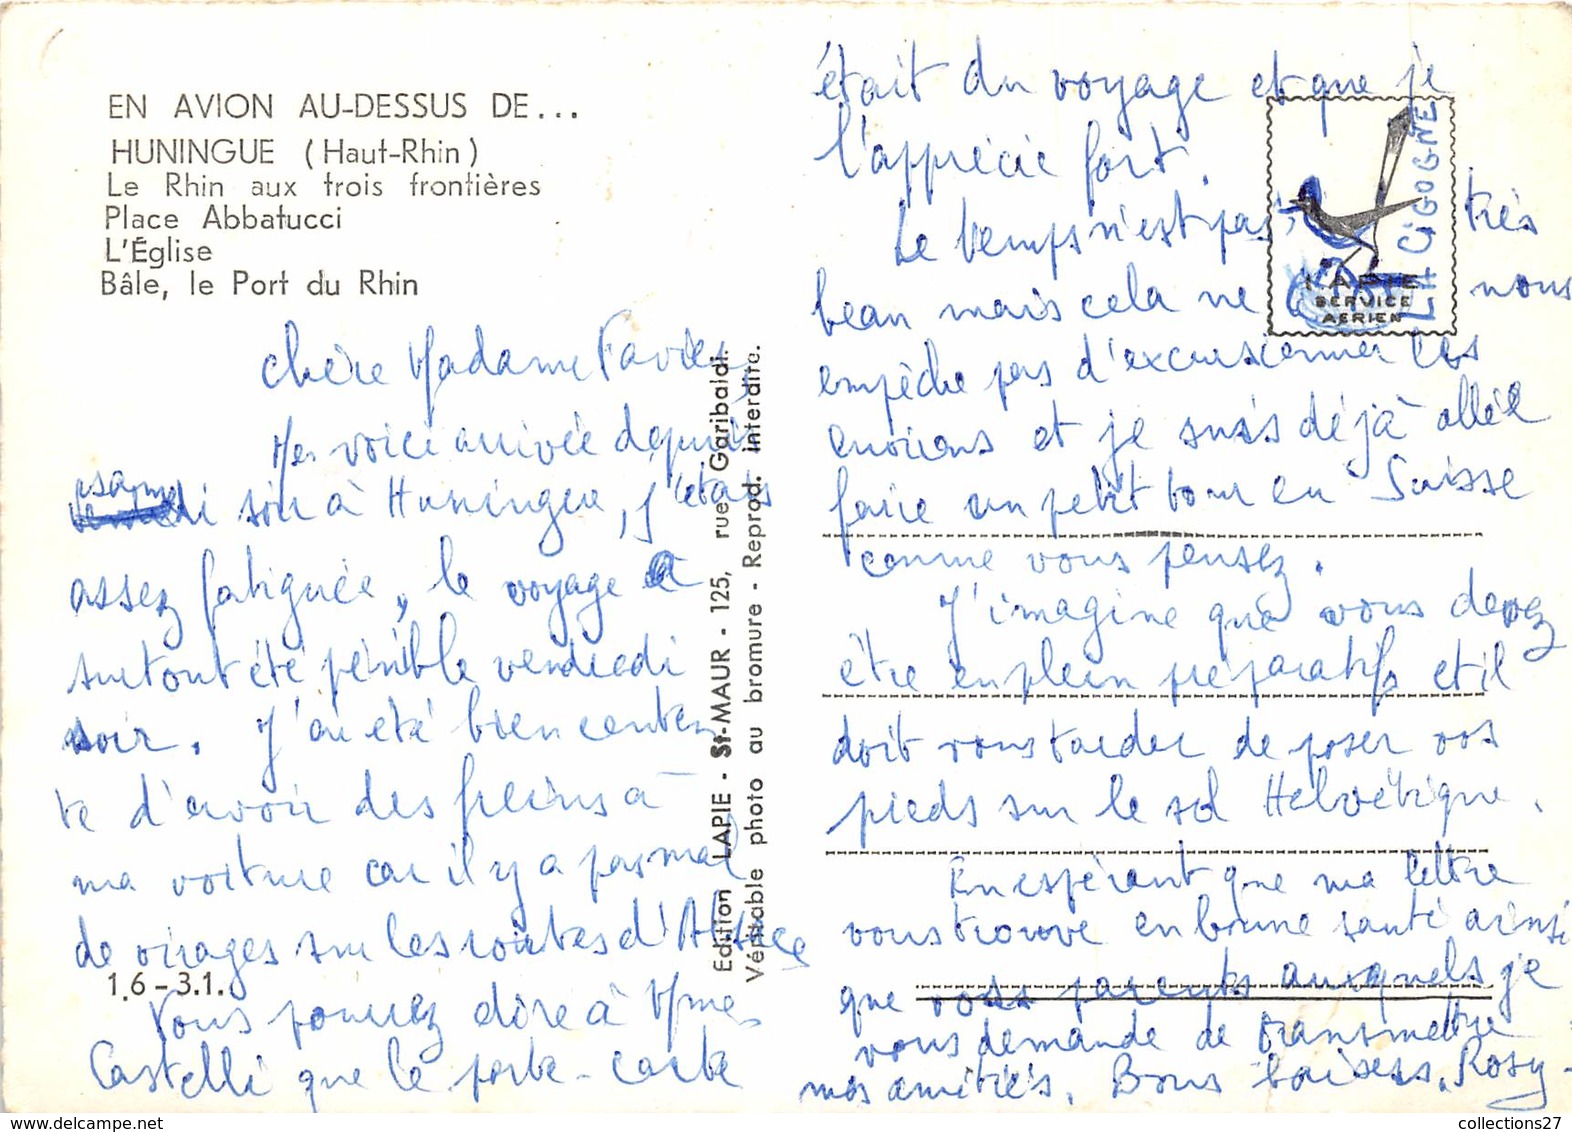 EN AVION AU-DESSUS DE...
HUNINGUE (Haut-Rhin)
Le Rhin aux trois frontières
Place Abbatucci
L'Église
Bâle, le Port du Rhin
Chère Madame Favier,
Me voici arrivée depuis
samedi soir à Huningue, j'étais
assez fatiguée, le voyage a
surtout été pénible vendredi
soir. J'ai été bien conten
te d'avoir des freins à
ma voiture car il y a pas mal
de virages sur les routes d'Alsace
1.6-3.1.
Vous pouvez dire à Mme
Castelli que le porte-carte
Edition LAPIE - St-MAUR - 125, rue Garibaldi.
Véritable photo au bromure - Reprod. interdite.
était du voyage et que je
l'apprécie fort.
Le temps n'est pas très
beau mais cela ne nous
empêche pas d'excursionner les
environs et je suis déjà allée
faire un petit tour en Suisse
comme vous pensez.
J'imagine que vous devez
être en plein préparatifs et il
doit vous tarder de poser vos
pieds sur le sol Helvétique.
En espérant que ma lettre
vous trouve en bonne santé ainsi
que vos parents auxquels je
vous demande de transmettre
mes amitiés. Bons baisers. Rosy
LA CIGOGNE
LAPIE
SERVICE
AERIEN
collections27